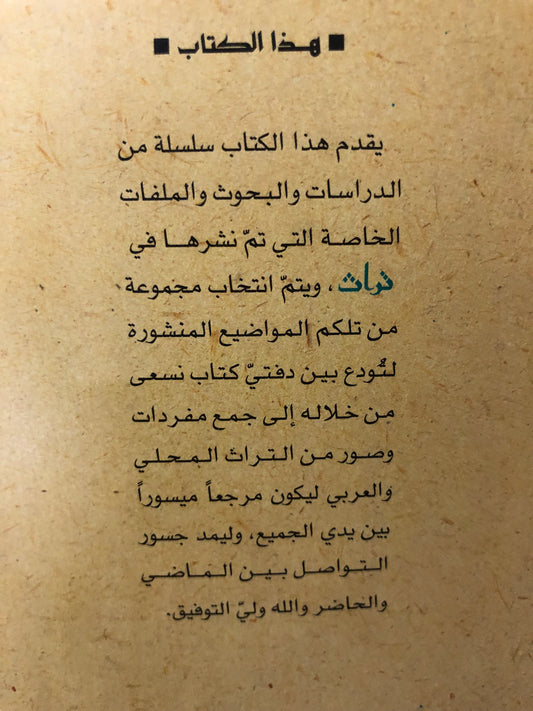 ■ هذا الكتاب ■
يقدم هذا الكتاب سلسلة من
الدراسات والبحوث والملفات
الخاصة التي تمّ نشرها في
تراث، ويتمّ انتخاب مجموعة
من تلكم المواضيع المنشورة
لتُودع بين دفتيّ كتاب نسعى
من خلاله إلى جمع مفردات
وصور من التراث المحلي
والعربي ليكون مرجعاً ميسوراً
بين يدي الجميع، وليمد جسور
التواصل بين الماضي
والحاضر والله وليّ التوفيق.